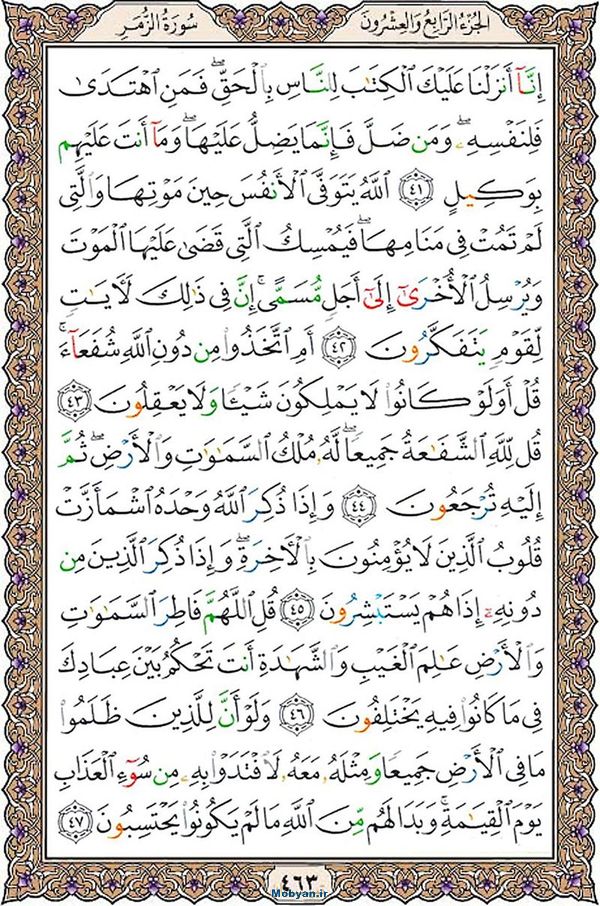 الجُزْءُ الرَّابِعُ وَالعِشْرُونَ سُورَةُ الزُّمَرِ
إِنَّآ أَنزَلْنَا عَلَيْكَ ٱلْكِتَٰبَ لِلنَّاسِ بِٱلْحَقِّ ۖ فَمَنِ ٱهْتَدَىٰ
فَلِنَفْسِهِۦ ۖ وَمَن ضَلَّ فَإِنَّمَا يَضِلُّ عَلَيْهَا ۖ وَمَآ أَنتَ عَلَيْهِم
بِوَكِيلٍ ٤١ ٱللَّهُ يَتَوَفَّى ٱلْأَنفُسَ حِينَ مَوْتِهَا وَٱلَّتِى
لَمْ تَمُتْ فِى مَنَامِهَا ۖ فَيُمْسِكُ ٱلَّتِى قَضَىٰ عَلَيْهَا ٱلْمَوْتَ
وَيُرْسِلُ ٱلْأُخْرَىٰٓ إِلَىٰٓ أَجَلٍ مُّسَمًّى ۚ إِنَّ فِى ذَٰلِكَ لَءَايَٰتٍ
لِّقَوْمٍ يَتَفَكَّرُونَ ٤٢ أَمِ ٱتَّخَذُوا۟ مِن دُونِ ٱللَّهِ شُفَعَآءَ ۚ
قُلْ أَوَلَوْ كَانُوا۟ لَا يَمْلِكُونَ شَيْـًٔا وَلَا يَعْقِلُونَ ٤٣
قُل لِّلَّهِ ٱلشَّفَٰعَةُ جَمِيعًا ۖ لَّهُۥ مُلْكُ ٱلسَّمَٰوَٰتِ وَٱلْأَرْضِ ۖ ثُمَّ
إِلَيْهِ تُرْجَعُونَ ٤٤ وَإِذَا ذُكِرَ ٱللَّهُ وَحْدَهُ ٱشْمَأَزَّتْ
قُلُوبُ ٱلَّذِينَ لَا يُؤْمِنُونَ بِٱلْءَاخِرَةِ ۖ وَإِذَا ذُكِرَ ٱلَّذِينَ مِن
دُونِهِۦٓ إِذَا هُمْ يَسْتَبْشِرُونَ ٤٥ قُلِ ٱللَّهُمَّ فَاطِرَ ٱلسَّمَٰوَٰتِ
وَٱلْأَرْضِ عَٰلِمَ ٱلْغَيْبِ وَٱلشَّهَٰدَةِ أَنتَ تَحْكُمُ بَيْنَ عِبَادِكَ
فِى مَا كَانُوا۟ فِيهِ يَخْتَلِفُونَ ٤٦ وَلَوْ أَنَّ لِلَّذِينَ ظَلَمُوا۟
مَا فِى ٱلْأَرْضِ جَمِيعًا وَمِثْلَهُۥ مَعَهُۥ لَٱفْتَدَوْا۟ بِهِۦ مِن سُوٓءِ ٱلْعَذَابِ
يَوْمَ ٱلْقِيَٰمَةِ ۚ وَبَدَا لَهُم مِّنَ ٱللَّهِ مَا لَمْ يَكُونُوا۟ يَحْتَسِبُونَ ٤٧
٤٦٣
Mobyan.ir